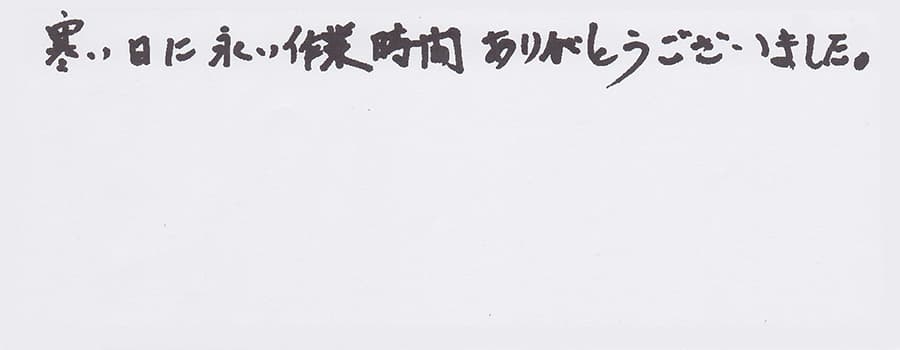 寒い日に永い作業時間ありがとうございました。